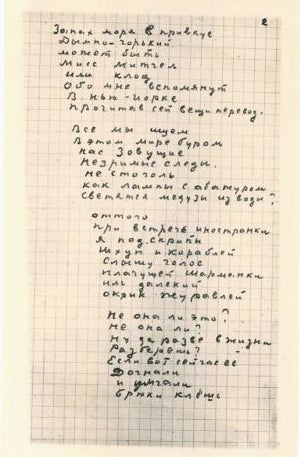 2
Запах моря в привкус
Дымно-горький
может быть
Мисс Митчел
или клод
Обо мне вспомянут
В Нью-Йорке
Прочитав сей вещи перевод.
Все мы ищем
В этом мире буром
нас зовущие
Незримые следы.
не стого ль
как лампы с абажуром
Светятся медузы из воды?
оттого
При встрече иностранки
Я под скрипы
Шхун и кораблей
Слышу голос
Плачущей шарманки
Иль далекий
окрик журавлей
Не она ли это?
не она ли?
Ну да разве в жизни
Разберешь?
Если вот сейчас ее
Догнали
и умчали
Брюки клёшь